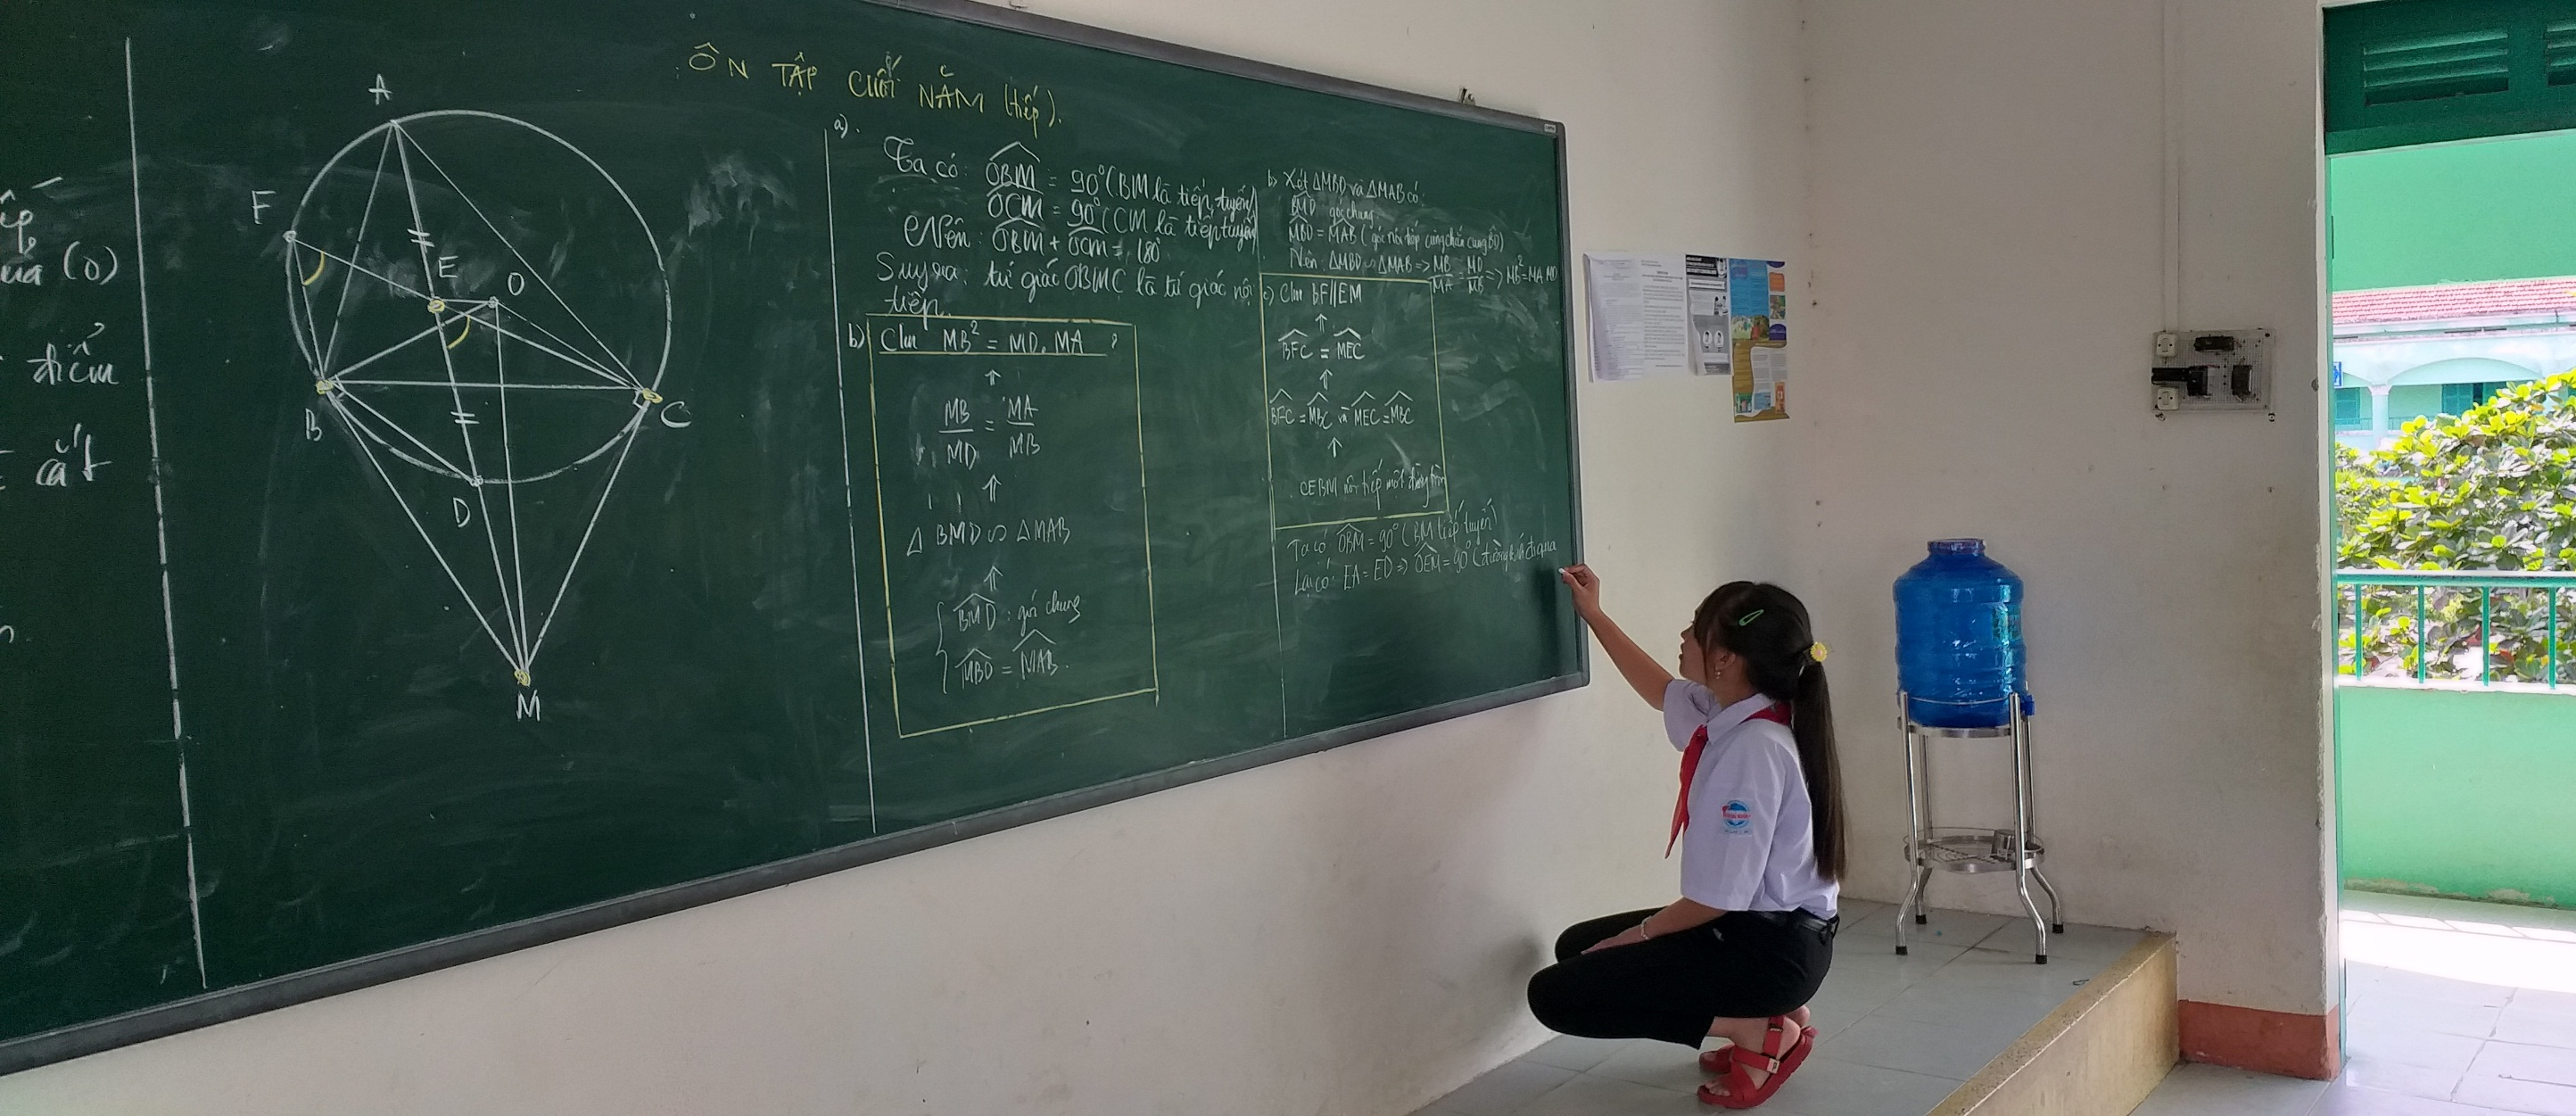 ÔN TẬP CUỐI NĂM (tiếp).
(O)
điểm
cắt
A
F
E
O
B
C
D
M
a).
Ta có: OBM = 90° (BM là tiếp tuyến)
OCM = 90° (CM là tiếp tuyến
Nên: OBM + OCM = 180°
Suy ra: tứ giác OBMC là tứ giác nội
tiếp.
b) Clm MB² = MD. MA ?
⇑
MB/MD = MA/MB
⇑
Δ BMD ∽ Δ MAB
⇑
BMD : góc chung
MBD = MAB.
b) Xét ΔMBD và ΔMAB có:
BMD góc chung
MBD = MAB (góc nội tiếp cùng chắn cung BD)
Nên ΔMBD ∽ ΔMAB => MB/MA = MD/MB => MB² = MA.MD
c) Clm BF//EM
⇑
BFC = MEC
⇑
BFC = MBC và MEC = MBC
⇑
CEBM nội tiếp một đường tròn
Ta có OBM = 90° (BM tiếp tuyến)
Lại có: EA = ED => OEM = 90° (đường kính đi qua